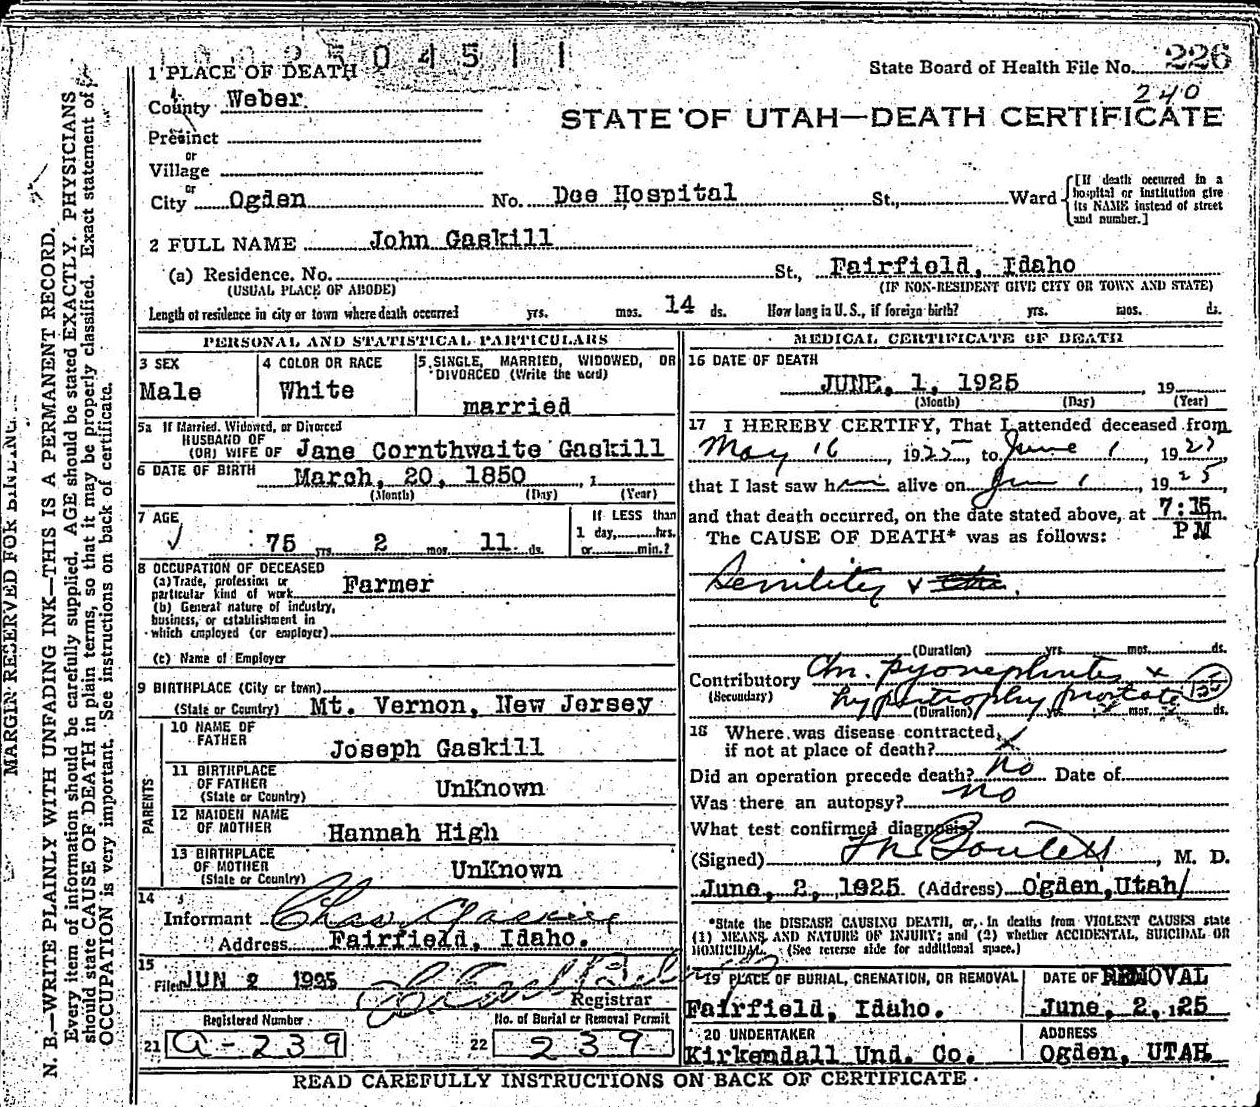 2504511
State Board of Health File No. 226
240
1 PLACE OF DEATH
County Weber
STATE OF UTAH—DEATH CERTIFICATE
Precinct
or
Village
or
City Ogden No. Dee Hospital St., Ward
[If death occurred in a hospital or institution give its NAME instead of street and number.]
2 FULL NAME John Gaskill
(a) Residence. No. St., Fairfield, Idaho
(USUAL PLACE OF ABODE) (IF NON-RESIDENT GIVE CITY OR TOWN AND STATE)
Length of residence in city or town where death occurred yrs. mos. 14 ds. How long in U. S., if foreign birth? yrs. mos. ds.
PERSONAL AND STATISTICAL PARTICULARS
3 SEX
Male
4 COLOR OR RACE
White
5 SINGLE, MARRIED, WIDOWED, OR DIVORCED (Write the word)
married
5a If Married, Widowed, or Divorced
HUSBAND OF
(OR) WIFE OF Jane Cornthwaite Gaskill
6 DATE OF BIRTH March, 20, 1850, 1
(Month) (Day) (Year)
7 AGE
75 yrs. 2 mos. 11 ds.
If LESS than
1 day, hrs.
or min.?
8 OCCUPATION OF DECEASED
(a) Trade, profession or
particular kind of work Farmer
(b) General nature of industry,
business, or establishment in
which employed (or employer)
(c) Name of Employer
9 BIRTHPLACE (City or town)
(State or Country) Mt. Vernon, New Jersey
PARENTS
10 NAME OF
FATHER Joseph Gaskill
11 BIRTHPLACE
OF FATHER
(State or Country) UnKnown
12 MAIDEN NAME
OF MOTHER Hannah High
13 BIRTHPLACE
OF MOTHER
(State or Country) UnKnown
14
Informant Chas Gaskill
Address Fairfield, Idaho.
15
Filed JUN 2 1925
Registrar
Registered Number
21 a-239
No. of Burial or Removal Permit
22 239
MEDICAL CERTIFICATE OF DEATH
16 DATE OF DEATH
JUNE, 1, 1925, 19
(Month) (Day) (Year)
17 I HEREBY CERTIFY, That I attended deceased from
May 16, 1925, to June 1, 1925
that I last saw him alive on June 1, 1925
and that death occurred, on the date stated above, at 7:15 m.
PM
The CAUSE OF DEATH* was as follows:
Senility &
(Duration) yrs. mos. ds.
Contributory Chr. pyonephritis &
(Secondary) hypertrophy prostate
(Duration) yrs. mos. ds.
18 Where was disease contracted,
if not at place of death?
Did an operation precede death? no Date of
Was there an autopsy? no
What test confirmed diagnosis?
(Signed) , M. D.
June, 2, 1925 (Address) Ogden, Utah
*State the DISEASE CAUSING DEATH, or, in deaths from VIOLENT CAUSES state
(1) MEANS AND NATURE OF INJURY; and (2) whether ACCIDENTAL, SUICIDAL OR
HOMICIDAL. (See reverse side for additional space.)
19 PLACE OF BURIAL, CREMATION, OR REMOVAL
Fairfield, Idaho.
DATE OF REMOVAL
June, 2, 125
20 UNDERTAKER
Kirkendall Und. Co.
ADDRESS
Ogden, UTAH
READ CAREFULLY INSTRUCTIONS ON BACK OF CERTIFICATE
MARGIN RESERVED FOR BINDING
N. B.—WRITE PLAINLY WITH UNFADING INK—THIS IS A PERMANENT RECORD.
Every item of information should be carefully supplied. AGE should be stated EXACTLY. PHYSICIANS
should state CAUSE OF DEATH in plain terms, so that it may be properly classified. Exact statement of
OCCUPATION is very important. See instructions on back of certificate.